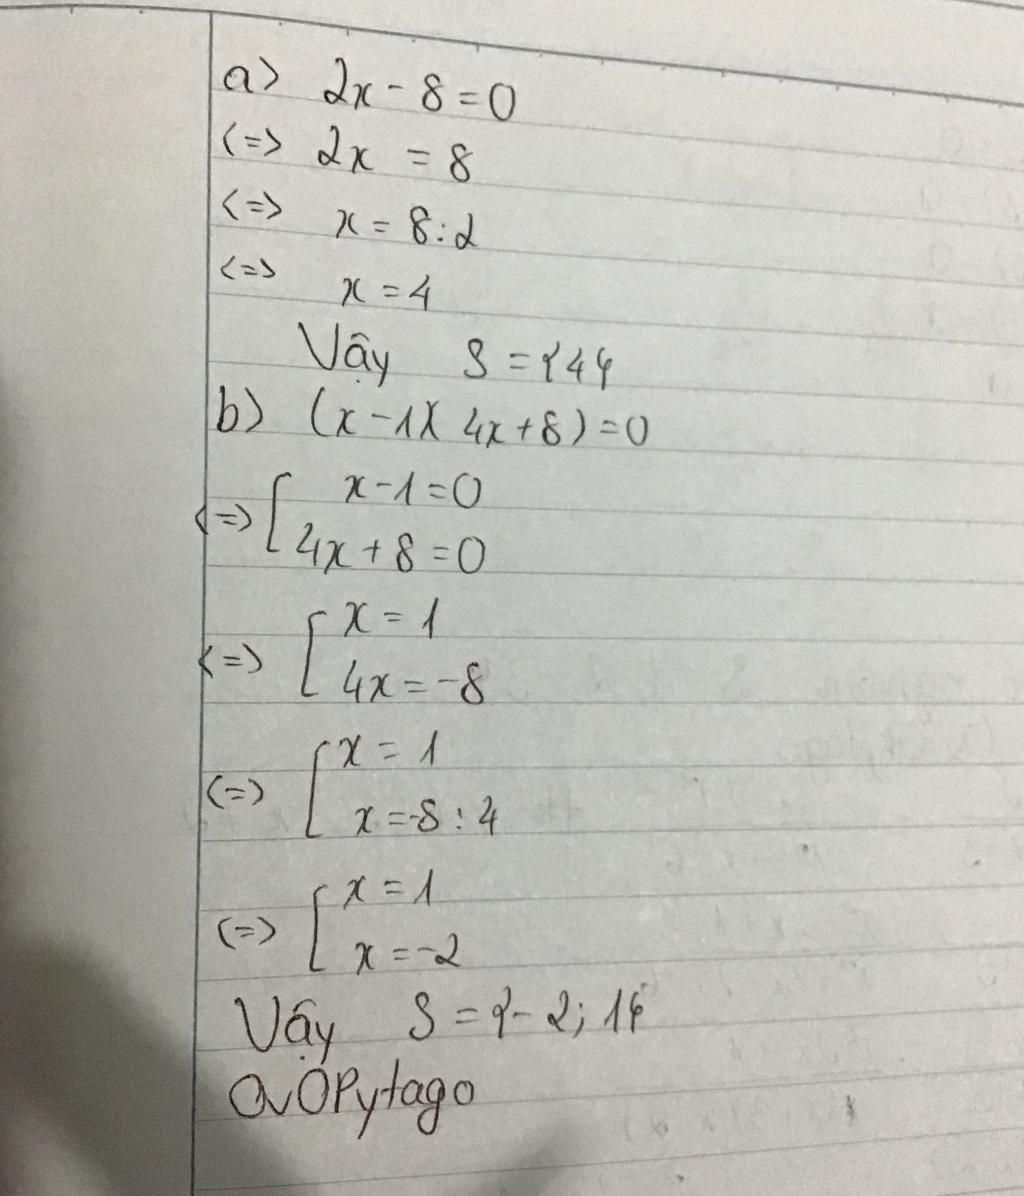 a> 2x - 8 = 0
<=> 2x = 8
<=> x = 8:2
<=> x = 4
Vậy S = {4}
b) (x - 1)( 4x + 8) = 0
<=> [ x - 1 = 0
4x + 8 = 0
<=> [ x = 1
4x = -8
<=> [ x = 1
x = -8 : 4
<=> [ x = 1
x = -2
Vậy S = {-2; 1}